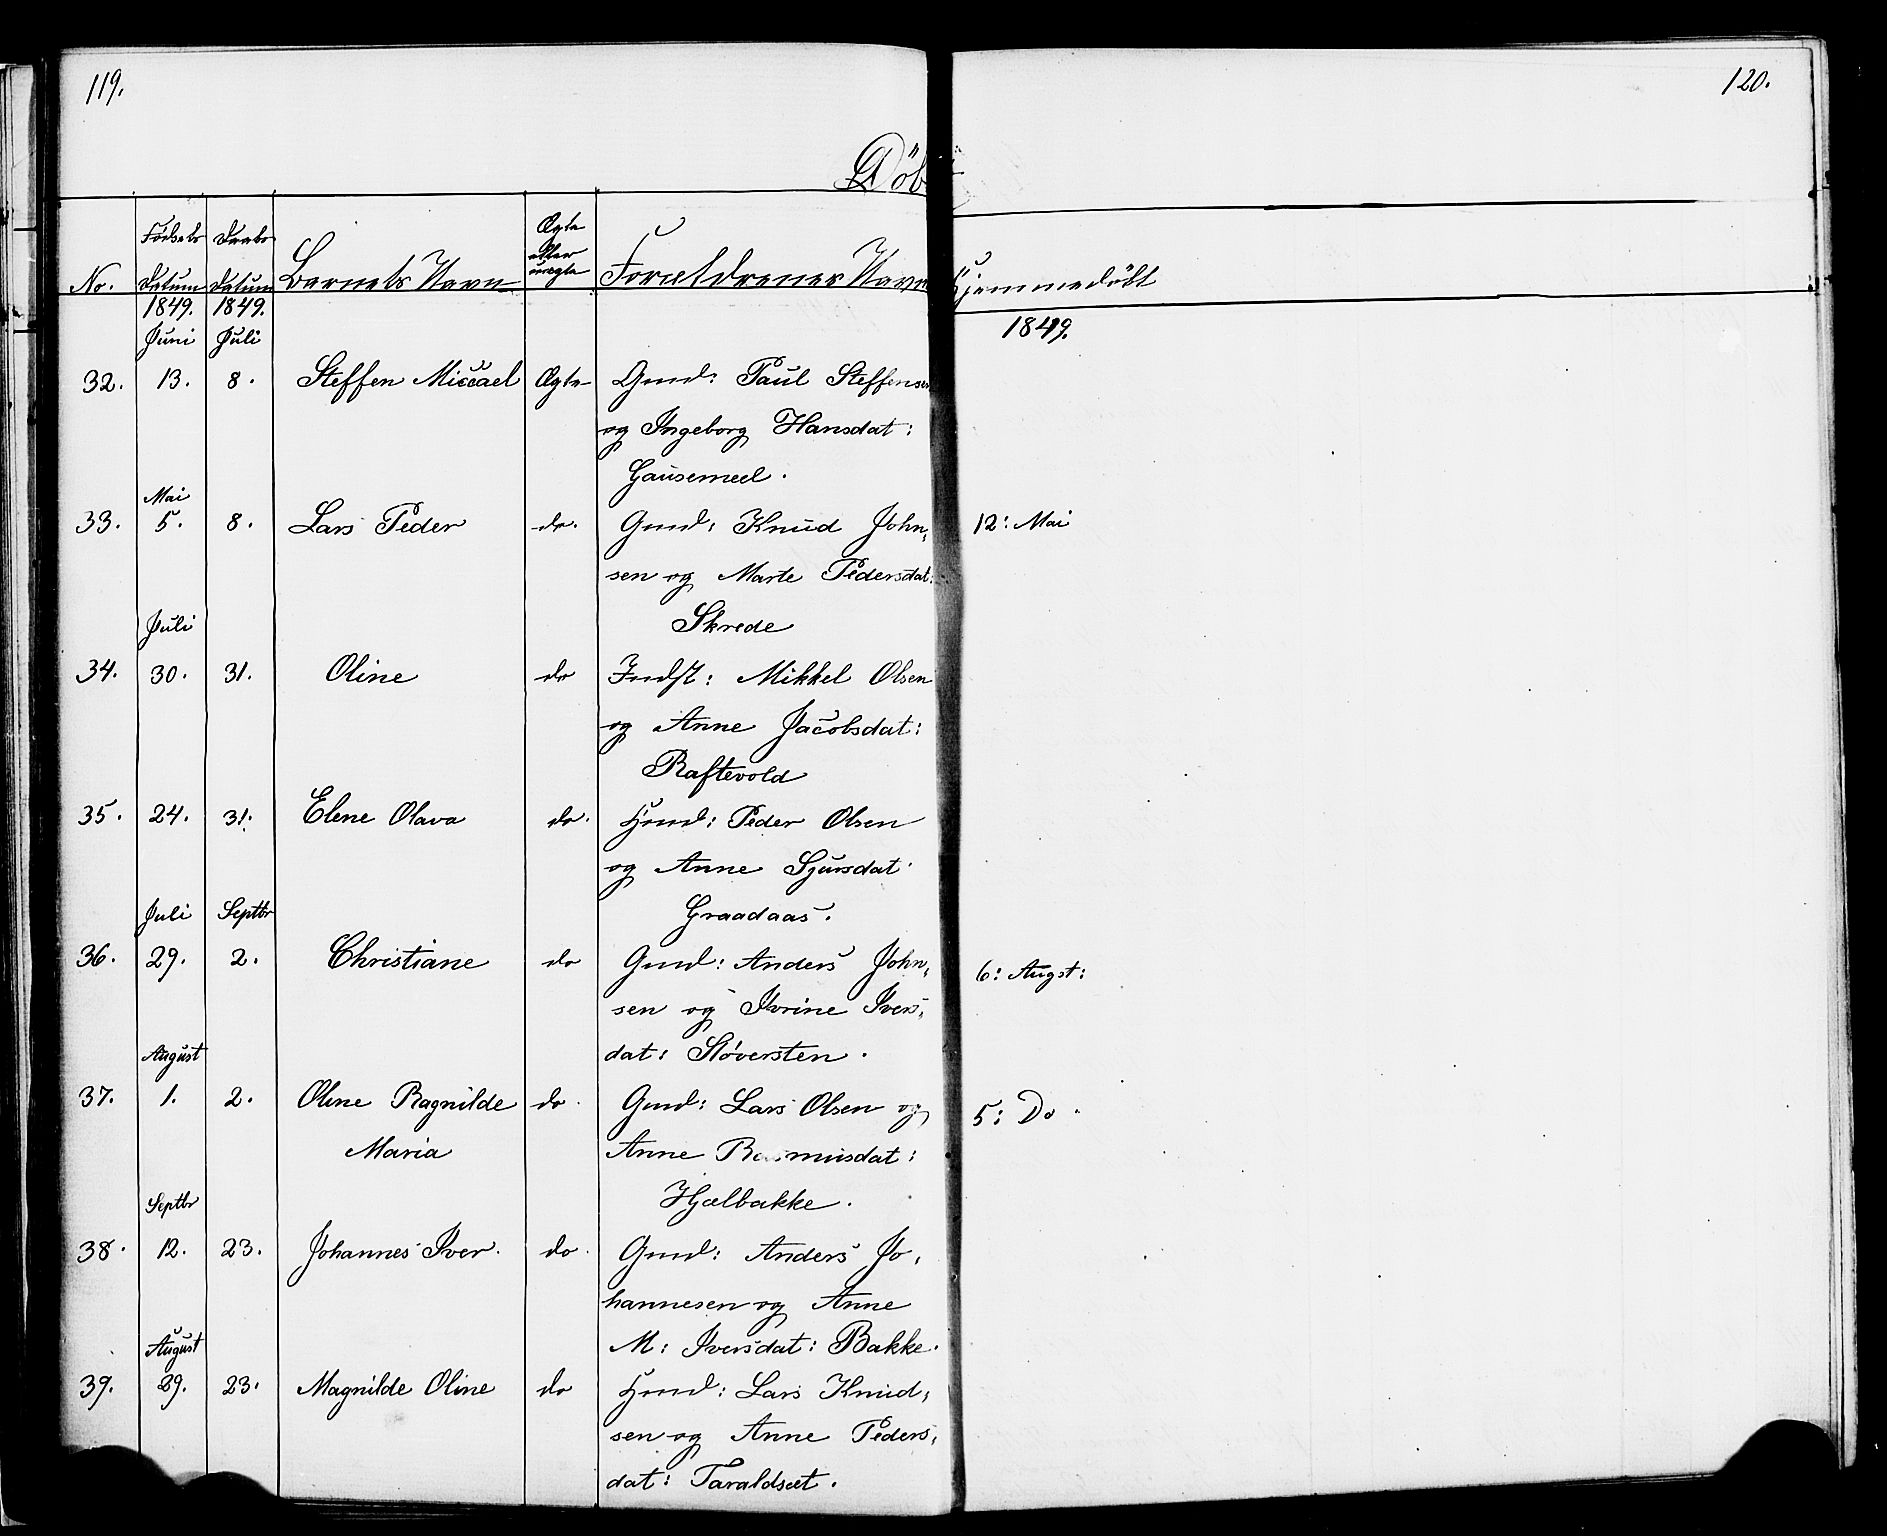 119.
120.
Döb
No.
Fødsels Datum
Daabs Datum
Barnets Navn
Ægte eller uægte
Forældrenes Navn
Hjemmedöbt
1849. 1849.
1849.
Juni Juli
32. 13. 8. Steffen Miccael Ægte Gmd: Paul Steffensen
og Ingeborg Hansdat:
Gausemeel.
Mai
33. 5. 8. Lars Peder do. Gmd: Knud John, 12: Mai
sen og Marte Pedersdat:
Juli
Skrede
34. 30. 31. Oline do Indst: Mikkel Olsen
og Anne Jacobsdat:
Raftevold
35. 24. 31. Elene Olava do. Hmd: Peder Olsen
og Anne Sjursdat
Juli Septbr
Graadaas.
36. 29. 2. Christiane do Gmd: Anders John, 6: Augst:
sen og Ivrine Ivers,
August
dat: Støversten.
37. 1. 2. Oline Ragnilde do. Gmd: Lars Olsen og 5: Do
Maria Anne Rasmusdat:
Septbr
Hjælbakke.
38. 12. 23. Johannes Iver. do. Gmd: Anders Jo,
hannesen og Anne
August
M: Iversdat: Bakke.
39. 29. 23. Magnilde Oline do Hmd: Lars Knud,
sen og Anne Peders,
dat: Taraldsæt.